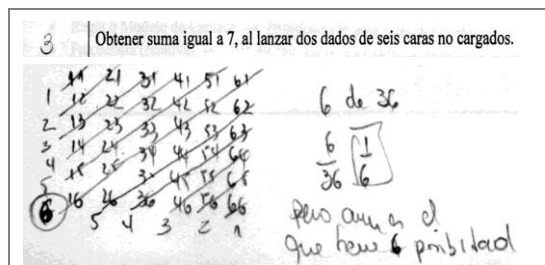 3 Obtener suma igual a 7, al lanzar dos dados de seis caras no cargados.
11 21 31 41 51 61
1 12 22 32 42 52 62
2 13 23 33 43 53 63
3 14 24 34 44 54 64
4 15 25 35 45 55 65
5
6 16 26 36 46 56 66
5 4 3 2 1
6 de 36
6/36 1/6
pero aun es el
que tiene 6